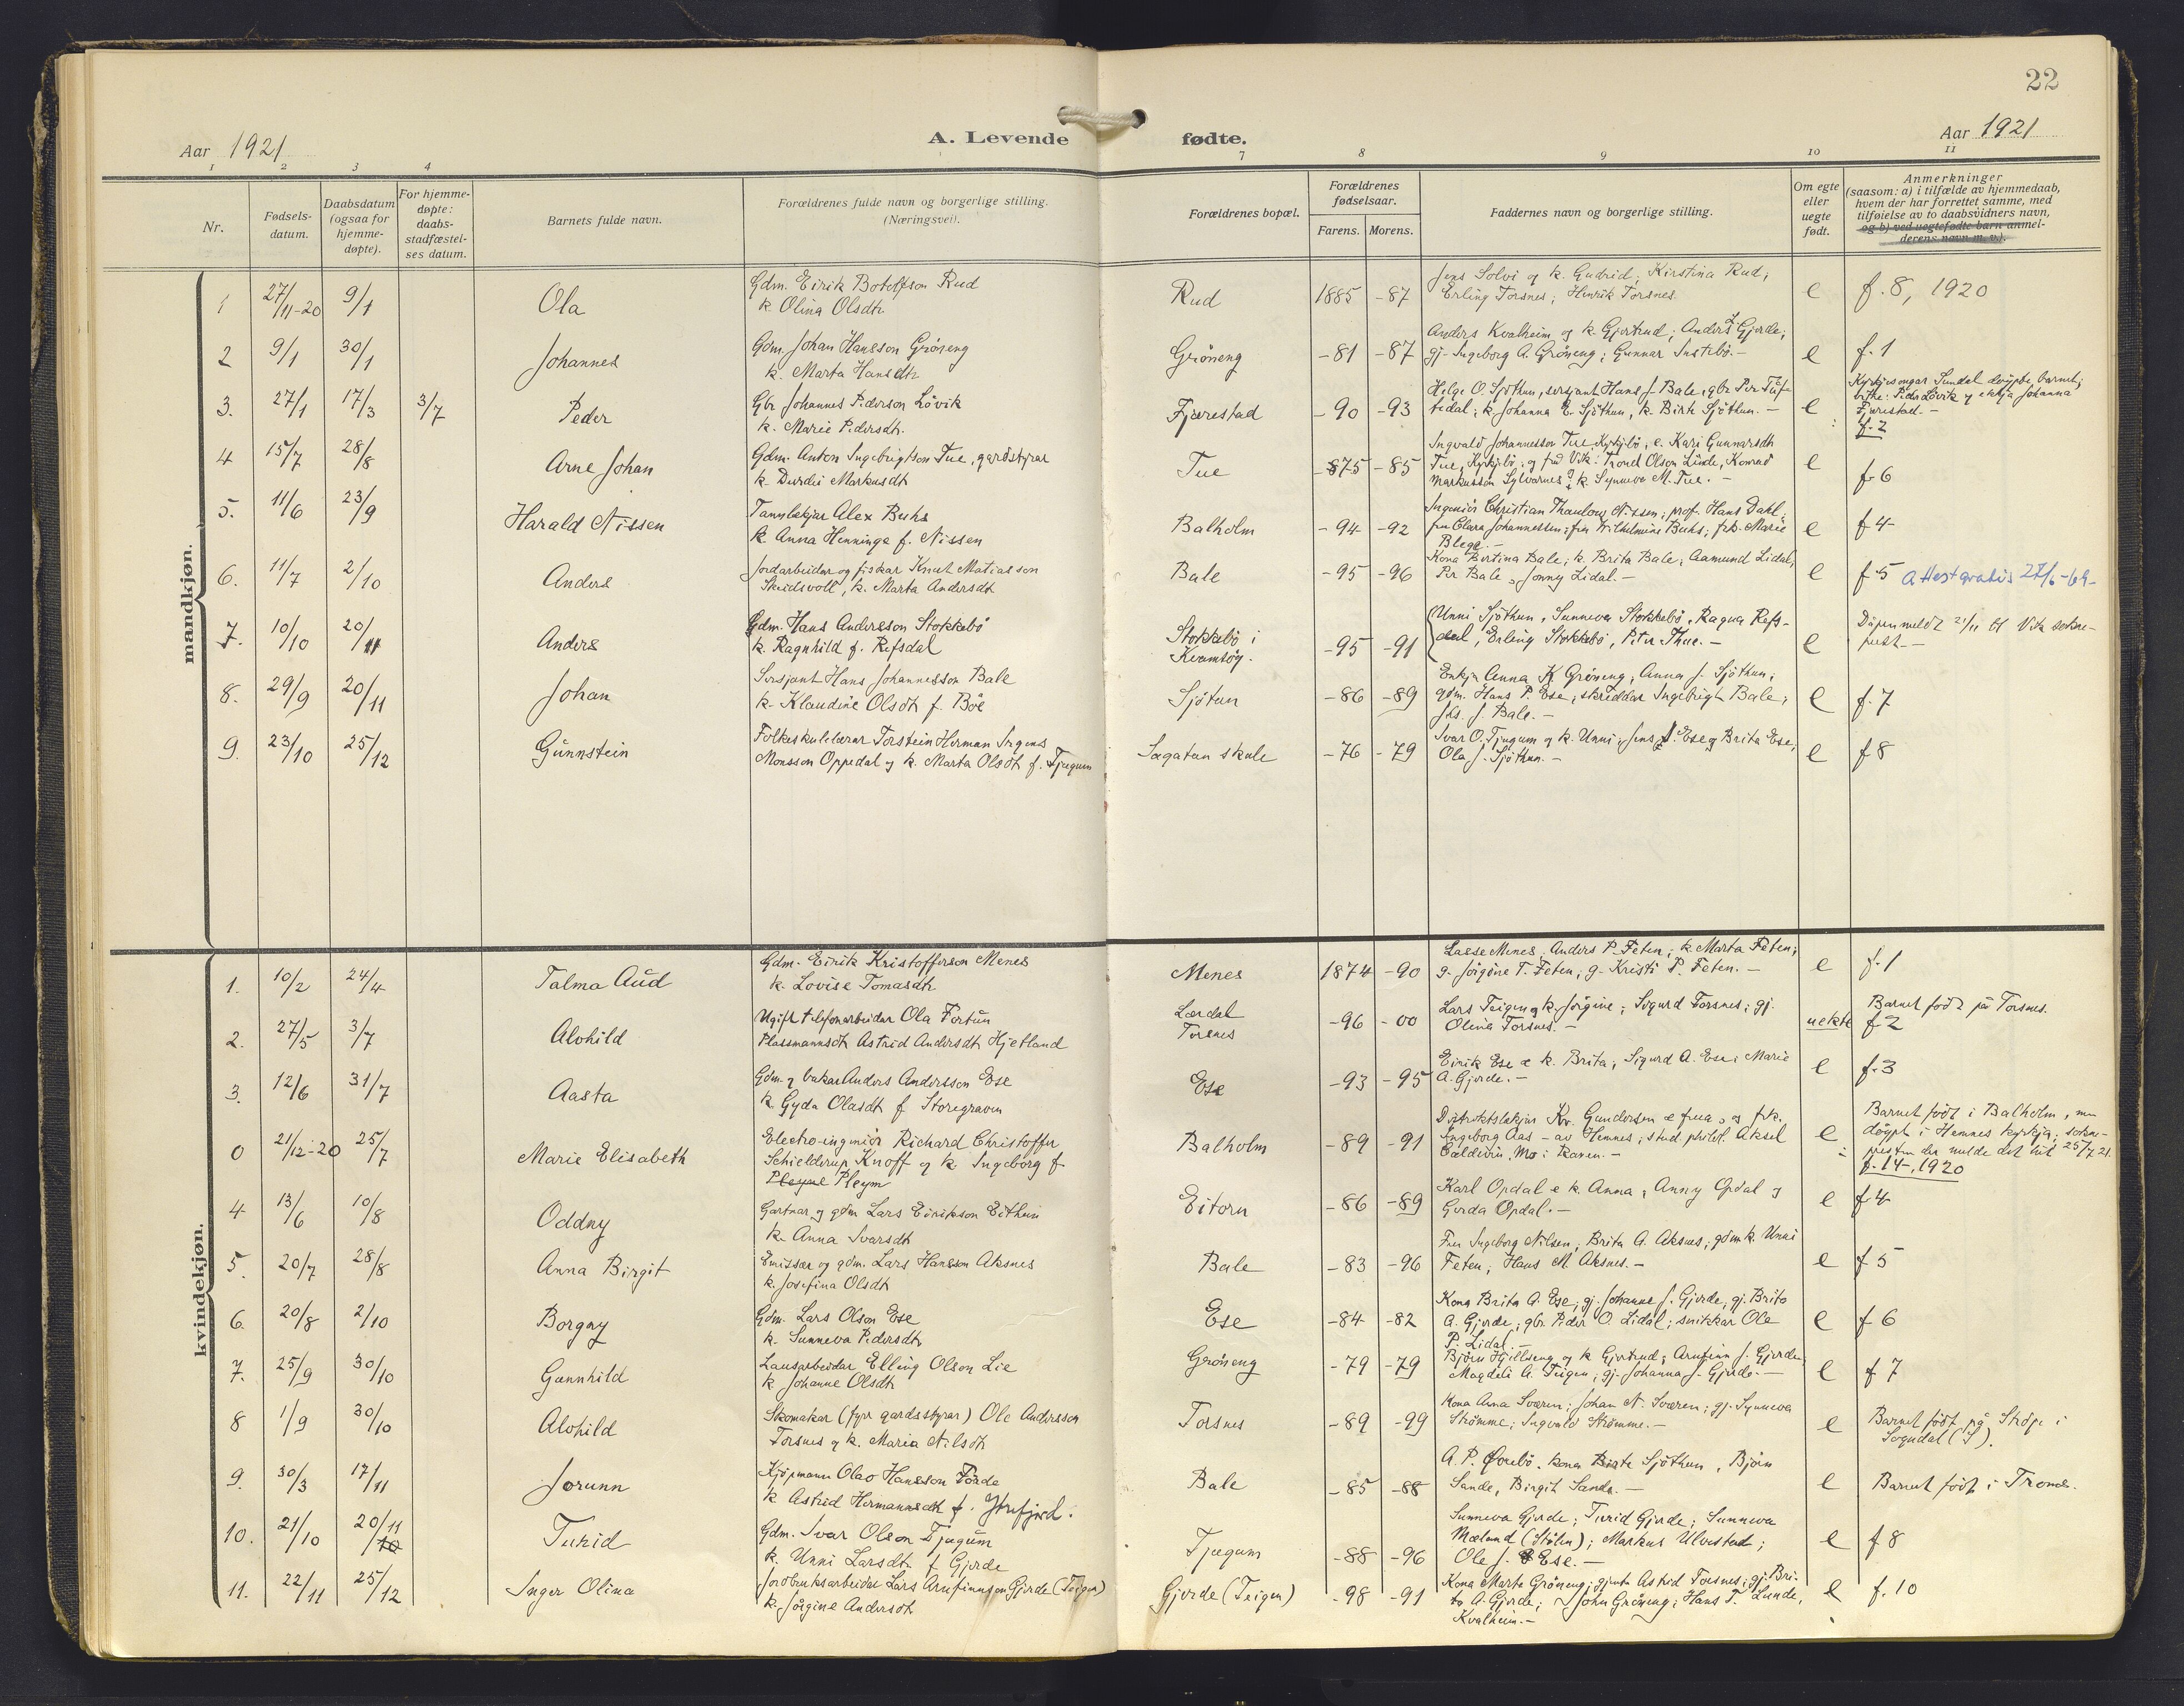 22
Aar 1921
A. Levende fødte.
Aar 1921
1 2 3 4 7 8 9 10 11
Nr.
Fødsels-
datum.
Daabsdatum
(ogsaa for
hjemme-
døpte).
For hjemme-
døpte:
daabs-
stadfæstel-
ses datum.
Barnets fulde navn.
Forældrenes fulde navn og borgerlige stilling.
(Næringsvei).
Forældrenes bopæl.
Forældrenes
fødselsaar.
Farens. Morens.
Faddernes navn og borgerlige stilling.
Om egte
eller
uegte
født.
Anmerkninger
(saasom: a) i tilfælde av hjemmedaab,
hvem der har forrettet samme, med
tilføielse av to daabsvidners navn,
og b) ved uegtefødte barn anmel-
derens navn m. v.).
mandkjøn.
1 27/11-20 9/1 Ola
Gdm. Eirik Botolfson Rud
k. Olina Olsdtr
Rud 1885 -87
Jens Solvi og k. Gudrid; Kirstina Rud;
Erling Torsnes; Henrik Torsnes.
e f. 8, 1920
2 9/1 30/1 Johannes
Gdm. Johan Hansson Grøneng
k. Marta Hansdtr
Grøneng -81 -87
Anders Kvalheim og k. Gjertrud; Anders L Gjerde;
gj. Ingeborg A. Grøneng; Gunnar Instebø.-
e f. 1
3. 27/1 17/3 3/7 Peder
Gbr Johannes Pederson Løvik
k. Marie Pedersdtr.
Fjærestad -90 -93
Helge O. Sjøthun, sersjant Hans J. Bale, gbr Per
k. Johanna E. Sjøthun, k. Birte Sjøthun. -
e
Kyrkjesongar Sundal døypte barnet;
Peder Løvik og enkja Johanna
Fjærestad.-
f. 2
4 15/7 28/8 Arne Johan
Gdm. Anton Ingebrigtson Tue, gardstyrar
k. Durdei Markusdtr
Tue -875 -85
Ingvald Johannesson Tue Kyrkjebø, e. Kari Gunnarsdtr
Tue, Kyrkjebø, og frå Vik: Trond Olson Linde, Konrad
Markusson Sylvarnes og k. Synneva M. Tue. -
e f 6
5. 11/6 23/9 Harald Nissen
Tannlækjar Alex Buhs
k. Anna Henninge f. Nissen
Balholm -94 -92
Ingeniør Christian Thaulow Nissen; prof. Hans Dahl;
fru Clara Johannessen; fru Wilhelmine Buhs; frk. Marie
Blegé.-
e f 4
6. 11/7 2/10 Anders
Jordarbeidar og fiskar Knut Matiasson
Skeidsvoll, k. Marta Andersdtr
Bale -95 -96
Kona Bertina Bale; k. Brita Bale; Aamund Lidal,
Per Bale, Jonny Lidal. -
e f 5 Attest gratis 27/6-
7. 10/10 20/11 Anders
Gdm. Hans Andersson Stokkebø
k. Ragnhild f. Refsdal
Stokkebø i
Kvamsøy. -95 -91
Unni Sjøthun, Sunneva Stokkebø, Ragna Refs-
dal, Erling Stokkebø, Peter Thue. -
e
Dåpen meldt 21/11 til Vik sokne-
prest. -
8. 29/9 20/11 Johan
Sersjant Hans Johannesson Bale
k. Klaudine Olsdtr f. Bøe
Sjøtun -86 -89
Enkja Anna K Grøneng, Anna J. Sjøthun;
gdm. Hans P. Ese; skreddar Ingebrigt Bale;
Jhs. J. Bale. -
e f. 7
9. 23/10 25/12 Gunnstein
Folkeskulelærar Torstein Herman Irgens
Monsson Oppedal og k. Marta Olsdtr f. Tjugum
Sagatun skule -76 -79
Ivar O. Tjugum og k. Unni; Jens J. Ese og Brita Ese;
Ola J. Sjøthun. -
e f 8
kvindekjøn.
1. 10/2 24/4 Talma Aud
Gdm. Eirik Kristofferson Menes
k. Lovise Tomasdtr
Menes 1874 -90
Lasse Menes, Anders P. Feten; k. Marta Feten;
g. Jørgine T. Feten; g. Kristi P. Feten. -
e f. 1
2. 27/5 3/7 Alvhild
Ugift telefonarbeidar Ola Fortun
Plassmannsdtr Astrid Andersdtr Hjetland
Lærdal
Torsnes -96 -00
Lars Teigen og k. Jørgine; Sigurd Torsnes; gj.
Olena Torsnes. -
uekte
Barnet født på Torsnes.
f 2
3. 12/6 31/7 Aasta
Gdm. og bakar Anders Andersson Ese
k. Gyda Olasdtr f Storegraven
Ese -93 -95
Eirik Ese & k. Brita; Sigurd A. Ese; Marie
A. Gjerde. -
e f. 3
0 21/12-20 25/7 Marie Elisabeth
Electro-ingeniør Richard Christoffer
Schielderup Knoff og k Ingeborg f
Pleyne Pleym
Balholm -89 -91
Distriktslækjar Kr. Gundersen & frua, og frk.
Ingeborg Aas - av Hemnes; stud. philol. Aksel
Mo i Ranen. -
e
Barnet født i Balholm, men
døypt i Hemnes kyrkja; sokne-
presten der melde det hit 25/7 21.
f. 14, 1920
4 13/6 10/8 Oddny
Gartnar og gdm Lars Eirikson Eithun
k. Anna Ivarsdtr
Eitorn -86 -89
Karl Opdal & k. Anna, Anny Opdal og
Gerda Opdal. -
e f 4
5. 20/7 28/8 Anna Birgit
Emissær og gdm. Lars Hansson Aksnes
k. Josefina Olsdtr
Bale -83 -96
Fru Ingeborg Nilsen; Brita A. Aksnes; gdm k. Unni
Feten; Hans M. Aksnes. -
e f 5
6. 20/8 2/10 Borgny
Gdm. Lars Olson Ese
k. Sunneva Pedersdtr
Ese -84 -82
Kona Brita A. Ese; gj. Johanne J. Gjerde; gj. Brita
A. Gjerde; gbr. Peder O. Lidal; snikkar Ole
P. Lidal. -
e f 6
7. 25/9 30/10 Gunnhild
Lausarbeidar Elling Olson Lie
k Johanne Olsdtr
Grøneng -79 -79
Bjørn Hjellseng og k Gjertrud; Arnfinn J. Gjerde;
Magdeli A. Teigen; gj. Johanna J. Gjerde. -
e f 7
8 1/9 30/10 Alvhild
Skomakar (fyrr gardsstyrar) Ole Andersson
Torsnes og k. Maria Nilsdtr
Torsnes -89 -99
Kona Anna Sværen; Johan N. Sværen; gj. Synneva
Strømme; Ingvald Strømme. -
e
Barnet født på Stedje i
Sogndal (S).
9. 30/3 17/11 Jorunn
Kjøpmann Olav Hansson Førde
k Astrid Hermannsdtr f. Ytrefjord.
Bale -85 -88
A. P. Øvrebø, kona Birte Sjøthun, Bjørn
Sande, Birgit Sande. -
e Barnet født i Tromsø.
10. 21/10 20/11 10 Turid
Gdm. Ivar Olson Tjugum
k. Unni Larsdtr f Gjerde
Tjugum -88 -96
Sunneva Gjerde; Turid Gjerde; Sunneva
Mæland (Stølen); Markus Ulvestad;
Ole J. Ese. -
e f 8
11. 22/11 25/12 Inger Olina
Jordbruksarbeidar Lars Arnfinnson Gjerde (Teigen)
k. Jørgine Andersdtr
Gjerde (Teigen) -98 -91
Kona Marta Grøneng; gjenta Astrid Torsnes; gj. Bri-
ta A. Gjerde; John Grøneng; Hans T. Lunde,
Kvalheim. -
e f. 10